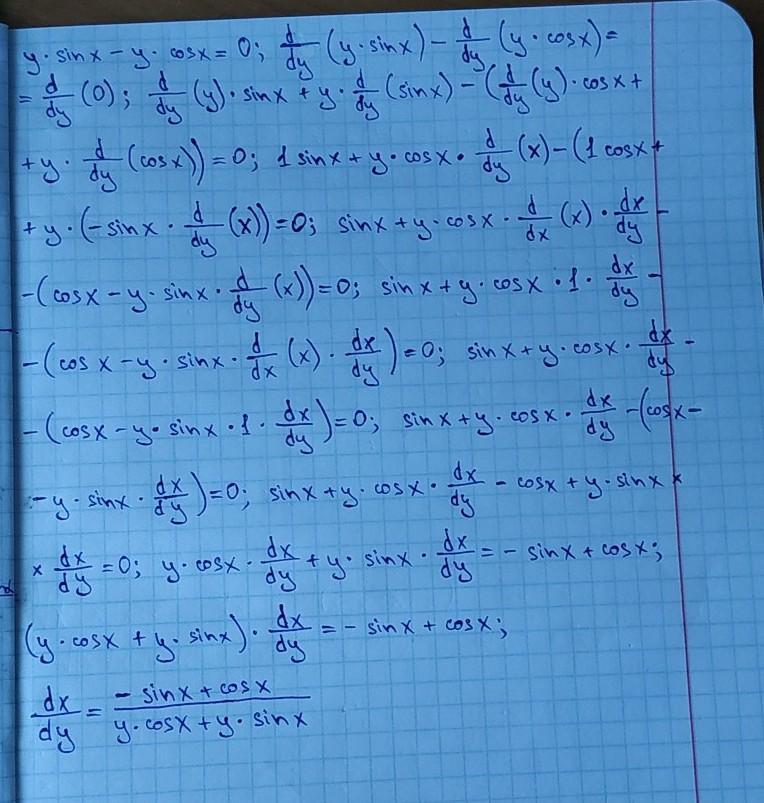 y · sinx − y · cosx = 0; d/dy (y · sinx) − d/dy (y · cosx) =
= d/dy (0); d/dy (y) · sinx + y · d/dy (sinx) − (d/dy (y) · cosx +
+ y · d/dy (cosx)) = 0; 1 sinx + y · cosx · d/dy (x) − (1 cosx +
+ y · (− sinx · d/dy (x)) = 0; sinx + y · cosx · d/dx (x) · dx/dy −
− (cosx − y · sinx · d/dy (x)) = 0; sinx + y · cosx · 1 · dx/dy −
− (cosx − y · sinx · d/dx (x) · dx/dy) = 0; sinx + y · cosx · dx/dy −
− (cosx − y · sinx · 1 · dx/dy) = 0; sinx + y · cosx · dx/dy − (cosx −
− y · sinx · dx/dy) = 0; sinx + y · cosx · dx/dy − cosx + y · sinx ×
× dx/dy = 0; y · cosx · dx/dy + y · sinx · dx/dy = − sinx + cosx;
(y · cosx + y · sinx) · dx/dy = − sinx + cosx;
dx/dy = (− sinx + cosx)/(y · cosx + y · sinx)